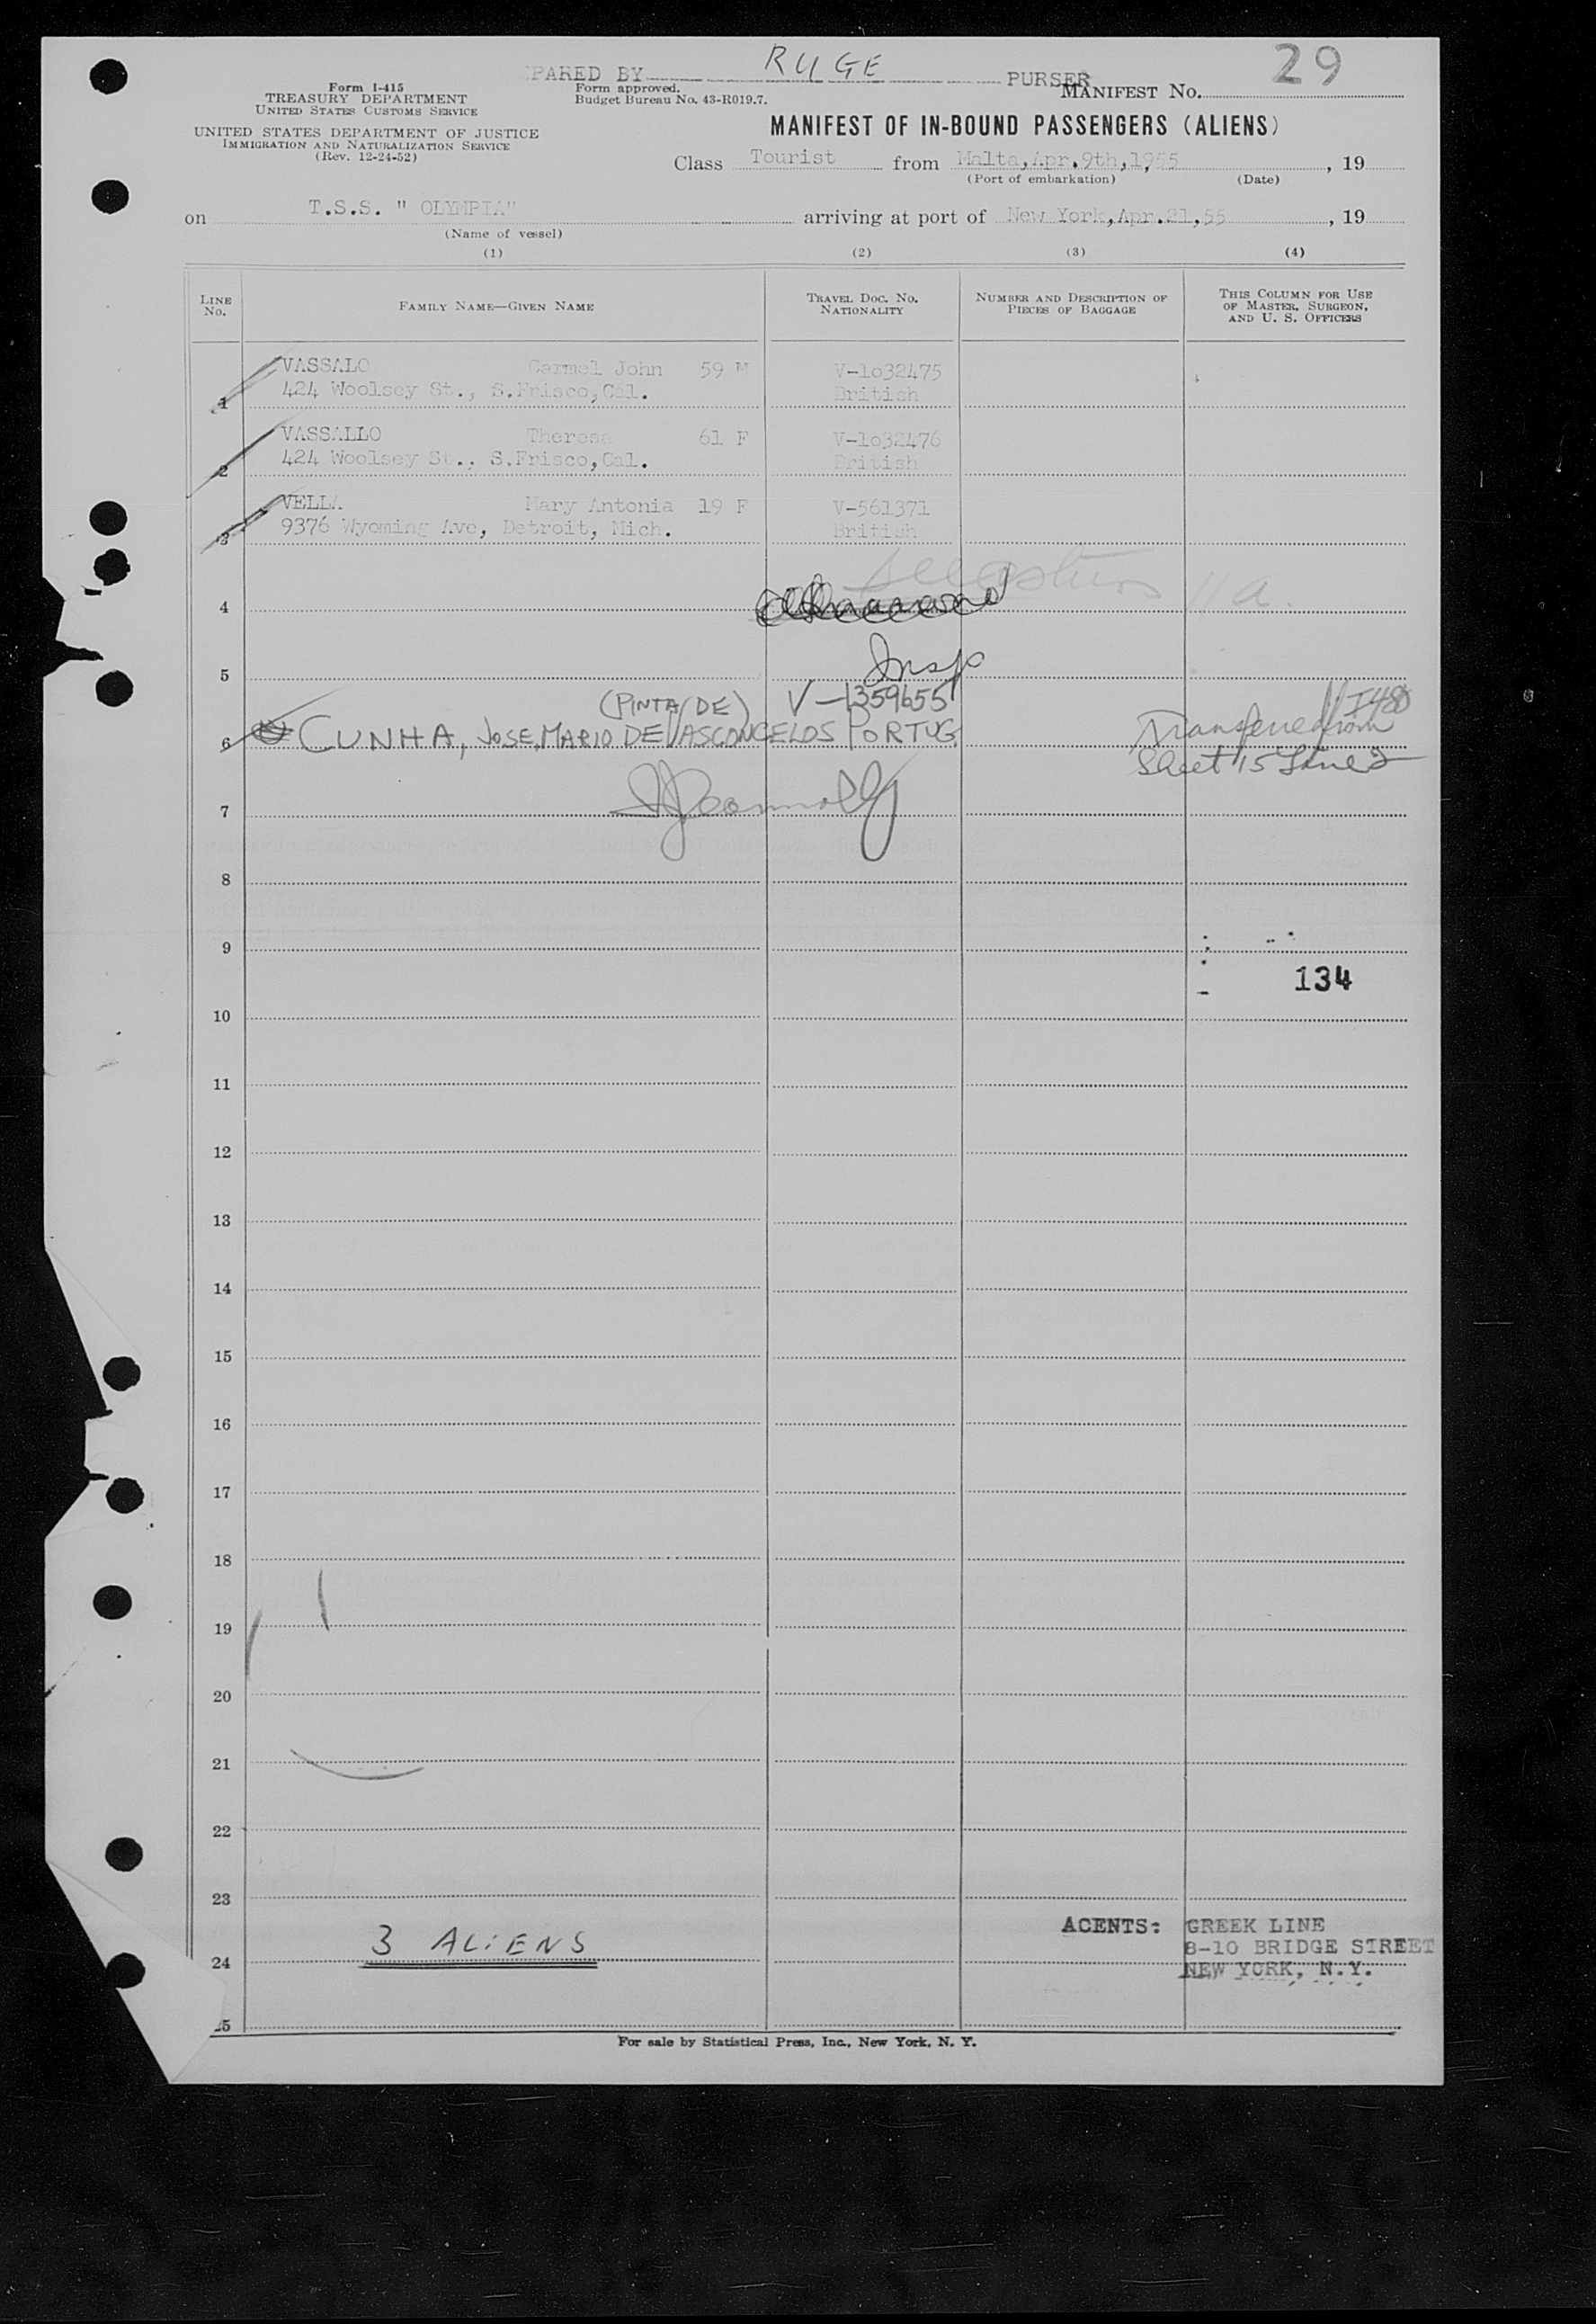 PARED BY RUGE PURSER
29
Form I-415
TREASURY DEPARTMENT
UNITED STATES CUSTOMS SERVICE
UNITED STATES DEPARTMENT OF JUSTICE
IMMIGRATION AND NATURALIZATION SERVICE
(Rev. 12-24-52)
Form approved.
Budget Bureau No. 43-R019.7.
MANIFEST NO.
MANIFEST OF IN-BOUND PASSENGERS (ALIENS)
Class Tourist from Malta, Apr. 9th, 1955, 19
(Port of embarkation) (Date)
on T.S.S. " OLYMPIA" arriving at port of New York, Apr. 21, 55, 19
(Name of vessel)
(1) (2) (3) (4)
LINE NO.
FAMILY NAME—GIVEN NAME
TRAVEL DOC. NO. NATIONALITY
NUMBER AND DESCRIPTION OF PIECES OF BAGGAGE
THIS COLUMN FOR USE OF MASTER, SURGEON, AND U. S. OFFICERS
VASSALO Carmel John 59 M V-1032475
1 424 Woolsey St., S.Frisco, Cal. British
VASSALLO Theresa 61 F V-1032476
2 424 Woolsey St., S.Frisco, Cal. British
VELLA Mary Antonia 19 F V-561371
3 9376 Wyoming Ave, Detroit, Mich. British
4
Insp
5
(PINTA/DE) V-1359655 I480
6 CUNHA, JOSE, MARIO DE VASCONCELOS PORTUG. Transferred from
Sheet 15 Line 2
7
8
9
134
10
11
12
13
14
15
16
17
18
19
20
21
22
23
3 ALIENS
24
25
AGENTS: GREEK LINE
8-10 BRIDGE STREET
NEW YORK, N.Y.
For sale by Statistical Press, Inc., New York, N. Y.